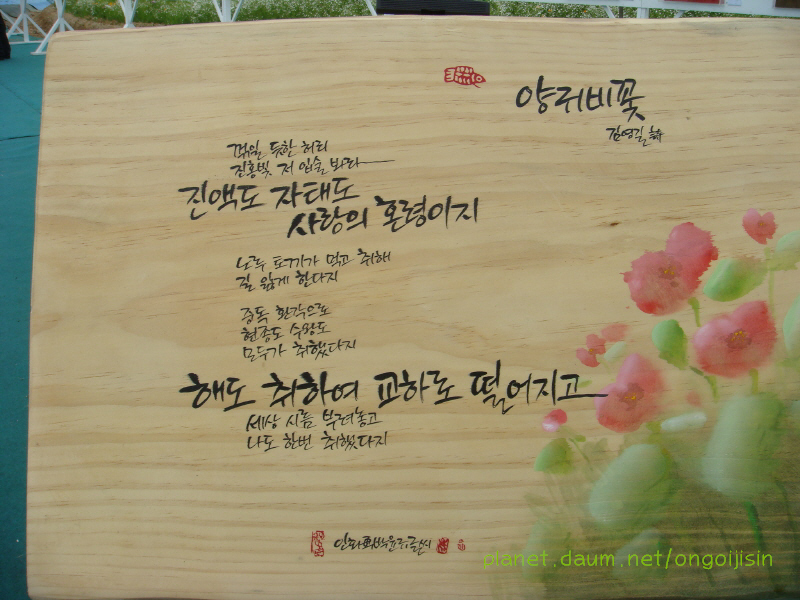 양귀비꽃
김영길 詩
꺾일 듯한 허리
진홍빛 저 입술 봐라
진액도 자태도
사랑의 혼령이지
노루 토끼가 먹고 취해
길 잃게 한다지
중독 환각으로
현종도 수왕도
모두가 취했다지
해도 취하여 교하로 떨어지고
세상 시름 부려놓고
나도 한번 취했다지
planet.daum.net/ongoijisin